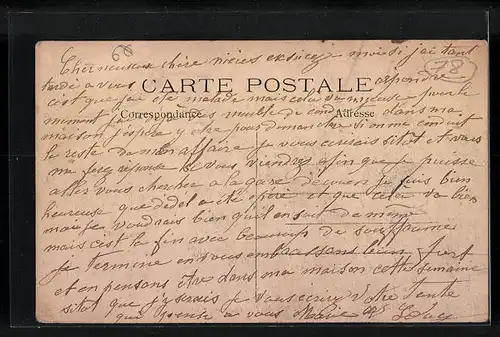 60
Cher neveux chère nièces excusez moi si j'ai tant
78
tardé a vous répondre
CARTE POSTALE
c'est que j'ai été malade mais cela va mieux pour le
Correspondance Adresse
moment meuble de dans ma
maison j'espère y être pour dimanche si on me conduit
le reste de mon affaire je vous écrirais sitot et vous
me ferez réponse si vous viendrez afin que je puisse
aller vous chercher a la gare d'écouen je suis bien
heureuse que Dédel a été opéré et que cela va bien
moi je voudrais bien qu'il en soit de même
mais c'est la fin avec beaucoup de souffrance
je termine en vous embrassans bien fort
et en pensons être dans ma maison cette semaine
sitot que j'y serais je vous écrirez Votre tante
que pense a vous Marie